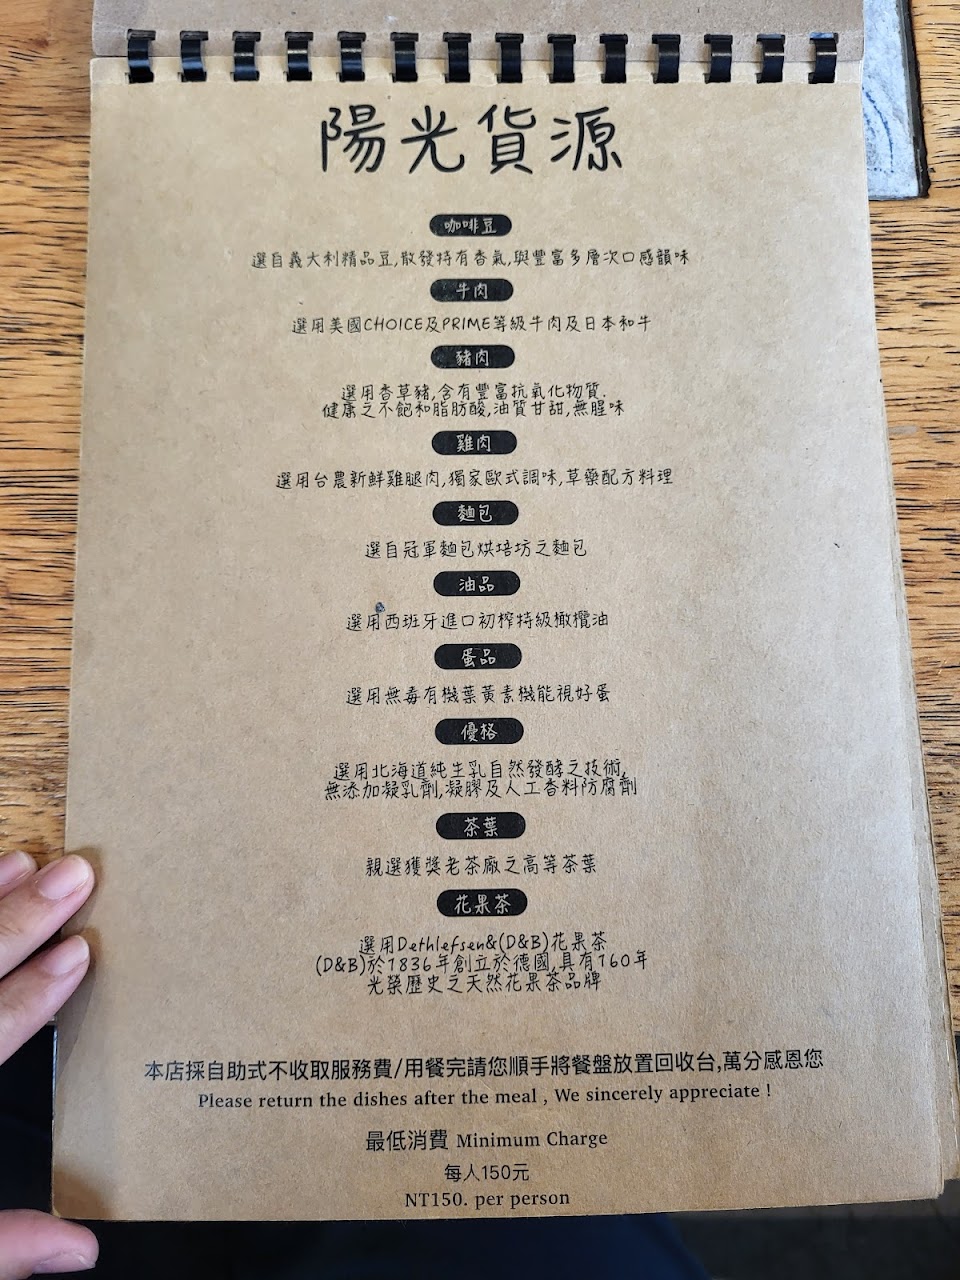 陽光貨源
咖啡豆
選自義大利精品豆,散發特有香氣,與豐富多層次口感韻味
牛肉
選用美國CHOICE及PRIME等級牛肉及日本和牛
豬肉
選用香草豬,含有豐富抗氧化物質.
健康之不飽和脂肪酸,油質甘甜,無腥味
雞肉
選用台農新鮮雞腿肉,獨家歐式調味,草藥配方料理
麵包
選自冠軍麵包烘培坊之麵包
油品
選用西班牙進口初榨特級橄欖油
蛋品
選用無毒有機葉黃素機能視好蛋
優格
選用北海道純生乳自然發酵之技術,
無添加凝乳劑,凝膠及人工香料防腐劑
茶葉
親選獲獎老茶廠之高等茶葉
花果茶
選用Dethlefsen&(D&B)花果茶
(D&B)於1836年創立於德國,具有160年
光榮歷史之天然花果茶品牌
本店採自助式不收取服務費/用餐完請您順手將餐盤放置回收台,萬分感恩您
Please return the dishes after the meal , We sincerely appreciate !
最低消費 Minimum Charge
每人150元
NT150. per person